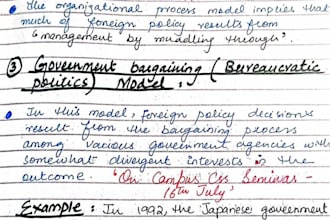 The organizational process model implies that
much of foreign policy results from
"management by muddling through".
③ Government bargaining (Bureaucratic
politics) Model :
In this model, foreign policy decisions
result from the bargaining process
among various government agencies with
somewhat divergent interests in the
outcome. "On Campus Css Seminar -
15th July"
Example : In 1992, the Japanese government